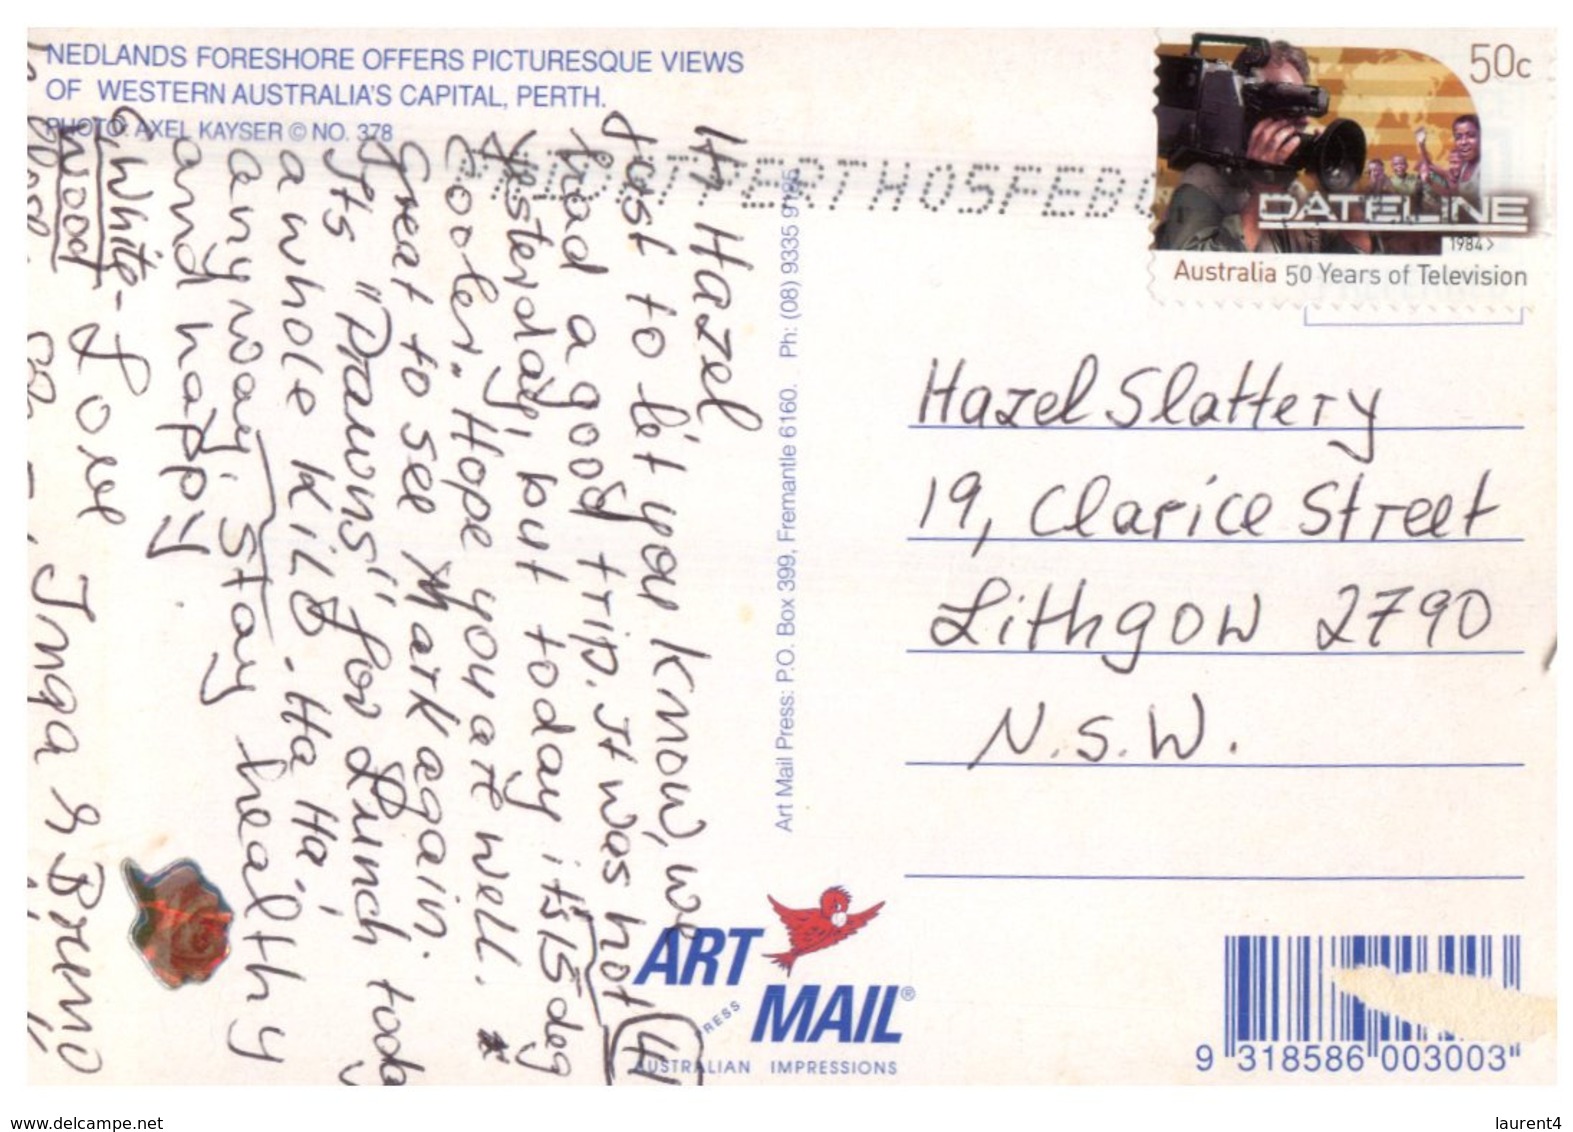 NEDLANDS FORESHORE OFFERS PICTURESQUE VIEWS
OF WESTERN AUSTRALIA'S CAPITAL, PERTH.
PHOTO: AXEL KAYSER © NO. 378
50c
DATELINE
1984>
Australia 50 Years of Television
PERTH 05FEB
Hi Hazel
Just to let you know, we
had a good trip. It was hot
yesterday, but today its 15 deg
cooler. Hope you are well.
Great to see Mark again.
Its "Prawns" for Lunch today
a whole KILO. Ha Ha,
anyway. Stay healthy
and happy
White-Love
Wood
Inga & Bruno
Art Mail Press: P.O. Box 399, Fremantle 6160. Ph: (08) 9335 9185
Hazel Slattery
19, Clarice Street
Lithgow 2790
N.S.W.
ART
PRESS
MAIL®
AUSTRALIAN IMPRESSIONS
9 318586 003003
www.delcampe.net
laurent4